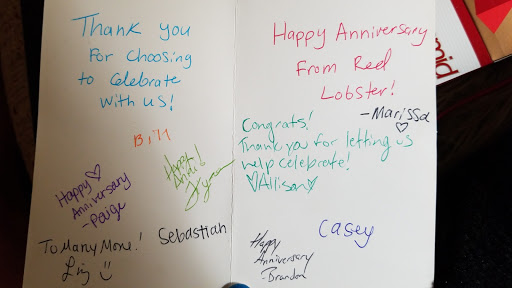 Thank you
For Choosing
to Celebrate
With US!
Bill
Happy
Anniv!
Happy
Anniversary
-Paige
To Many More!
Liz
Sebastian
Happy Anniversary
From Red
Lobster!
-Marissa
Congrats!
Thank you for letting us
help celebrate!
Allison
Casey
Happy
Anniversary
-Brandon